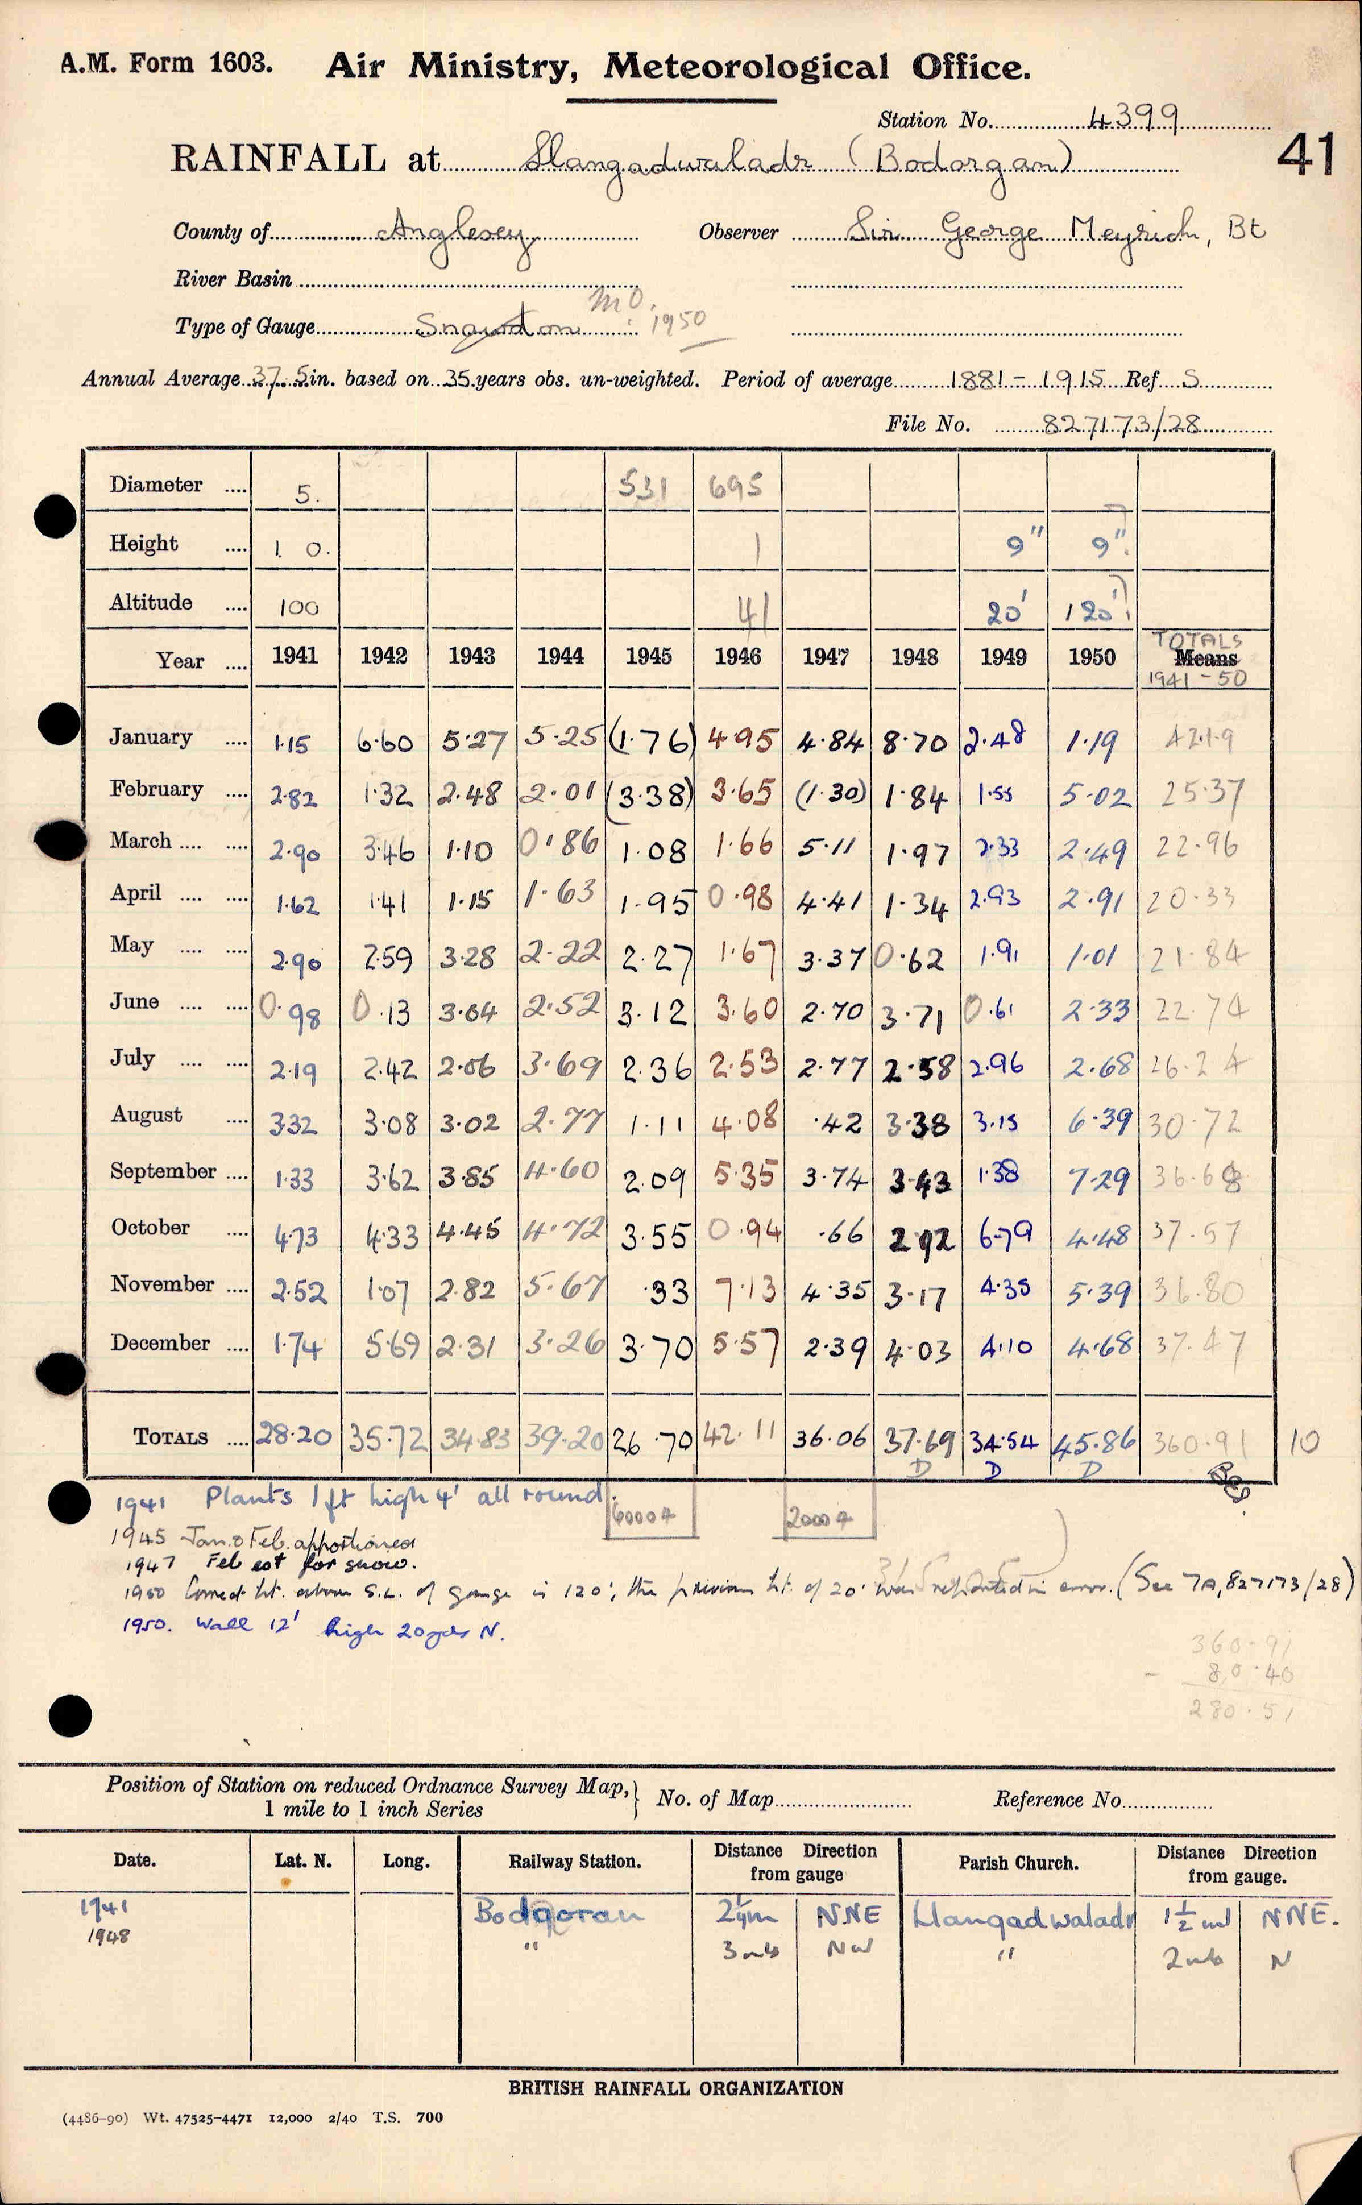 A.M. Form 1603. Air Ministry, Meteorological Office.
Station No. 4399
41
RAINFALL at Llangadwaladr (Bodorgan)
County of Anglesey Observer Sir George Meyrick, Bt
River Basin
M.O. 1950
Type of Gauge Snowdon
Annual Average 37.5 in. based on 35 years obs. un-weighted. Period of average 1881 - 1915 Ref S
File No. 827173/28
Diameter .... 5. 531 695
Height .... 1 0. 1 9" 9"?
Altitude .... 100 41 20' 120'?
Year .... 1941 1942 1943 1944 1945 1946 1947 1948 1949 1950 TOTALS Means 1941-50
January .... 1.15 6.60 5.27 5.25 (1.76) 4.95 4.84 8.70 2.48 1.19 42.19
February .... 2.82 1.32 2.48 2.01 (3.38) 3.65 (1.30) 1.84 1.55 5.02 25.37
March .... .... 2.90 3.46 1.10 0.86 1.08 1.66 5.11 1.97 2.33 2.49 22.96
April .... .... 1.62 1.41 1.15 1.63 1.95 0.98 4.41 1.34 2.93 2.91 20.33
May .... .... 2.90 2.59 3.28 2.22 2.27 1.67 3.37 0.62 1.91 1.01 21.84
June .... .... 0.98 0.13 3.04 2.52 3.12 3.60 2.70 3.71 0.61 2.33 22.74
July .... .... 2.19 2.42 2.06 3.69 2.36 2.53 2.77 2.58 2.96 2.68 26.24
August .... 3.32 3.08 3.02 2.77 1.11 4.08 .42 3.38 3.15 6.39 30.72
September .... 1.33 3.62 3.85 4.60 2.09 5.35 3.74 3.43 1.38 7.29 36.68
October .... 4.73 4.33 4.45 4.72 3.55 0.94 .66 2.92 6.79 4.48 37.57
November .... 2.52 1.07 2.82 5.67 .33 7.13 4.35 3.17 4.35 5.39 36.80
December .... 1.74 5.69 2.31 3.26 3.70 5.57 2.39 4.03 4.10 4.68 37.47
TOTALS .... 28.20 35.72 34.83 39.20 26.70 42.11 36.06 37.69 34.54 45.86 360.91 10
D D D
1941 Plants 1 ft high 4' all round.
1945 Jan. & Feb. apportioned
1947 Feb est for snow.
1950 Correct ht. above S.L. of gauge is 120'; the previous ht. of 20' was in error. (See 7A, 827173/28)
1950. Wall 12' high 20 yds N.
360.91
- 80.40
280.51
Position of Station on reduced Ordnance Survey Map, 1 mile to 1 inch Series } No. of Map Reference No.
Date. Lat. N. Long. Railway Station. Distance Direction from gauge Parish Church. Distance Direction from gauge.
1941 Bodgoran 2¼m NNE Llangadwaladr 1½ ml NNE.
1948 " 3 mls NW " 2 mls N
BRITISH RAINFALL ORGANIZATION
(4486-90) Wt. 47525-4471 12,000 2/40 T.S. 700